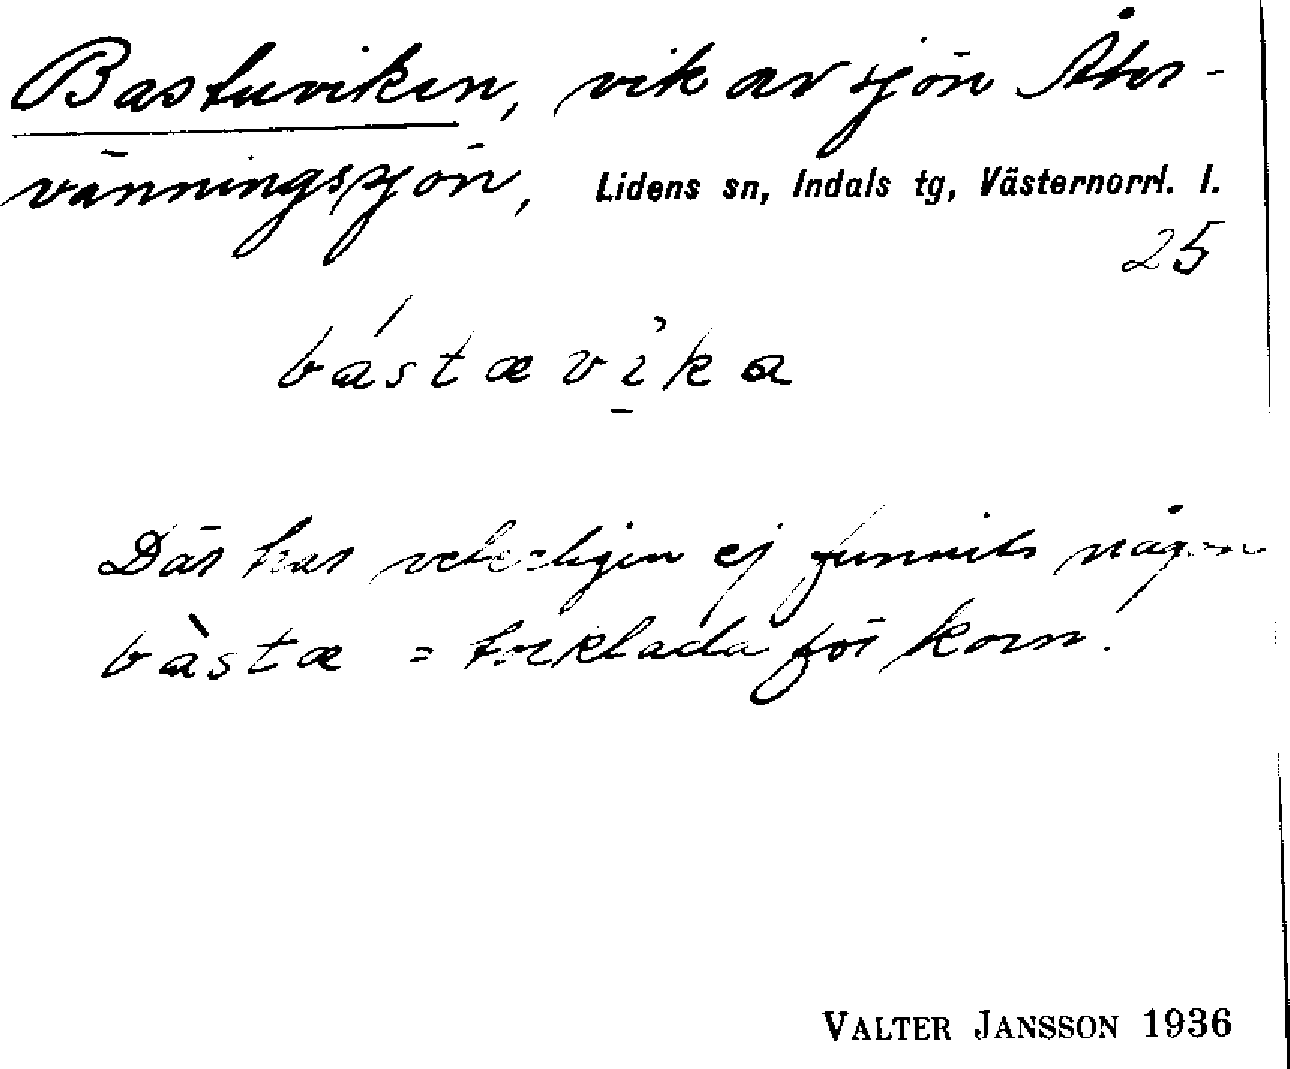 Bastuviken, vik av sjön Åter-
vänningssjön, Lidens sn, Indals tg, Västernorrl. l.
25
bástævìka
Där har veterligen ej funnits någon
bàstæ = torklada för korn.
VALTER JANSSON 1936